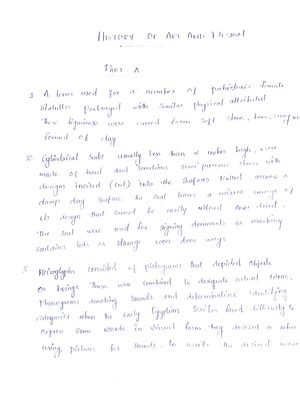 HISTORY OF ART AND DESIGN
PART A
A term used for a number of prehistoric female
statuttes portrayed with similar physical attributes
These figurines were carved from soft stone, bone, ivory or
formed of clay
Cylindrical seals usually less than 2 inches high, were
made of hard and sometimes semi precious stones with
designs incised (cut) into the surfaces Rolled across a
damp clay surface the seal leaves a mirror image of
its design that cannot be easily altered once dried.
The seal were used for signing documents or marking
contains lids or storage room door ways
Heiroglyphs consisted of pictograms that depicted objects
or beings These were combined to designate actual ideas,
Phonograms denoting sounds and determinatives identifying
categories when the early Egyptian Scribes faced difficulty to
express some words in visual form, they devised a
using, pictures for sounds. to write the desired word